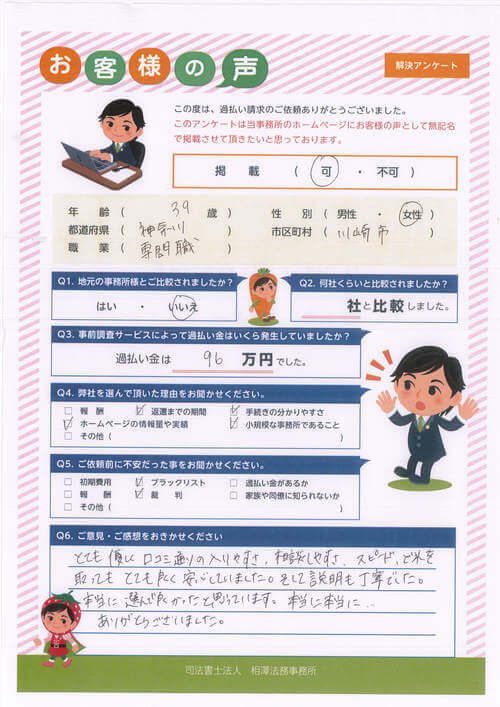 お客様の声
解決アンケート
この度は、過払い請求のご依頼ありがとうございました。
このアンケートは当事務所のホームページにお客様の声として無記名
で掲載させて頂きたいと思っております。
掲 載 ( 可 ・ 不可 )
年 齢 ( 39 歳 ) 性 別 ( 男性 ・ 女性 )
都道府県 ( 神奈川 ) 市区町村 ( 川崎市 )
職 業 ( 専門職 )
Q1. 地元の事務所様とご比較されましたか?
はい ・ いいえ
Q2. 何社くらいと比較されましたか?
社と比較しました。
Q3. 事前調査サービスによって過払い金はいくら発生していましたか?
過払い金は 96 万円でした。
Q4. 弊社を選んで頂いた理由をお聞かせください。
□ 報 酬 ☑ 返還までの期間 ☑ 手続きの分かりやすさ
☑ ホームページの情報量や実績 ☑ 小規模な事務所であること
□ その他 ( )
Q5. ご依頼前に不安だった事をお聞かせください。
□ 初期費用 ☑ ブラックリスト □ 過払い金があるか
□ 報 酬 ☑ 裁 判 □ 家族や同僚に知られないか
□ その他 ( )
Q6. ご意見・ご感想をおきかせください
とても優しく 口コミ通りの入りやすさ、相談しやすさ、スピード、どれを
取っても とても良く 安心していました。そして説明も丁寧でした。
本当に 選んで良かったと思っています。本当に本当に…
ありがとうございました。
司法書士法人 相澤法務事務所